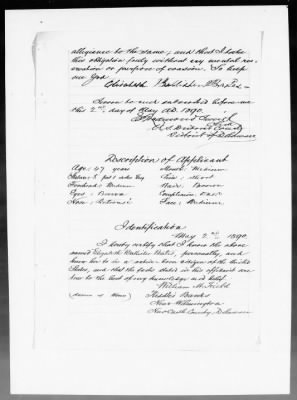 allegiance to the same; and that I take
this obligation freely without any mental res-
ervation or purpose of evasion. So help
me God.
Elizabeth Bates
Sworn to and subscribed before me
this 2nd day of May A.D. 1890.
U.S. District Court
District of Delaware
Description of Applicant
Age: 47 years Mouth: Medium
Stature: 5 feet Chin: Short
Forehead: Medium Hair: Brown
Eyes: Brown Complexion: Dark
Nose: Face: Medium
Identification
May 2nd 1890.
I hereby certify that I know the above
named Elizabeth Bates, personally, and
know her to be a native-born citizen of the United
States, and that the facts stated in this affidavit are
true to the best of my knowledge and belief.
William M.
Banks
Near Wilmington
New Castle County, Delaware